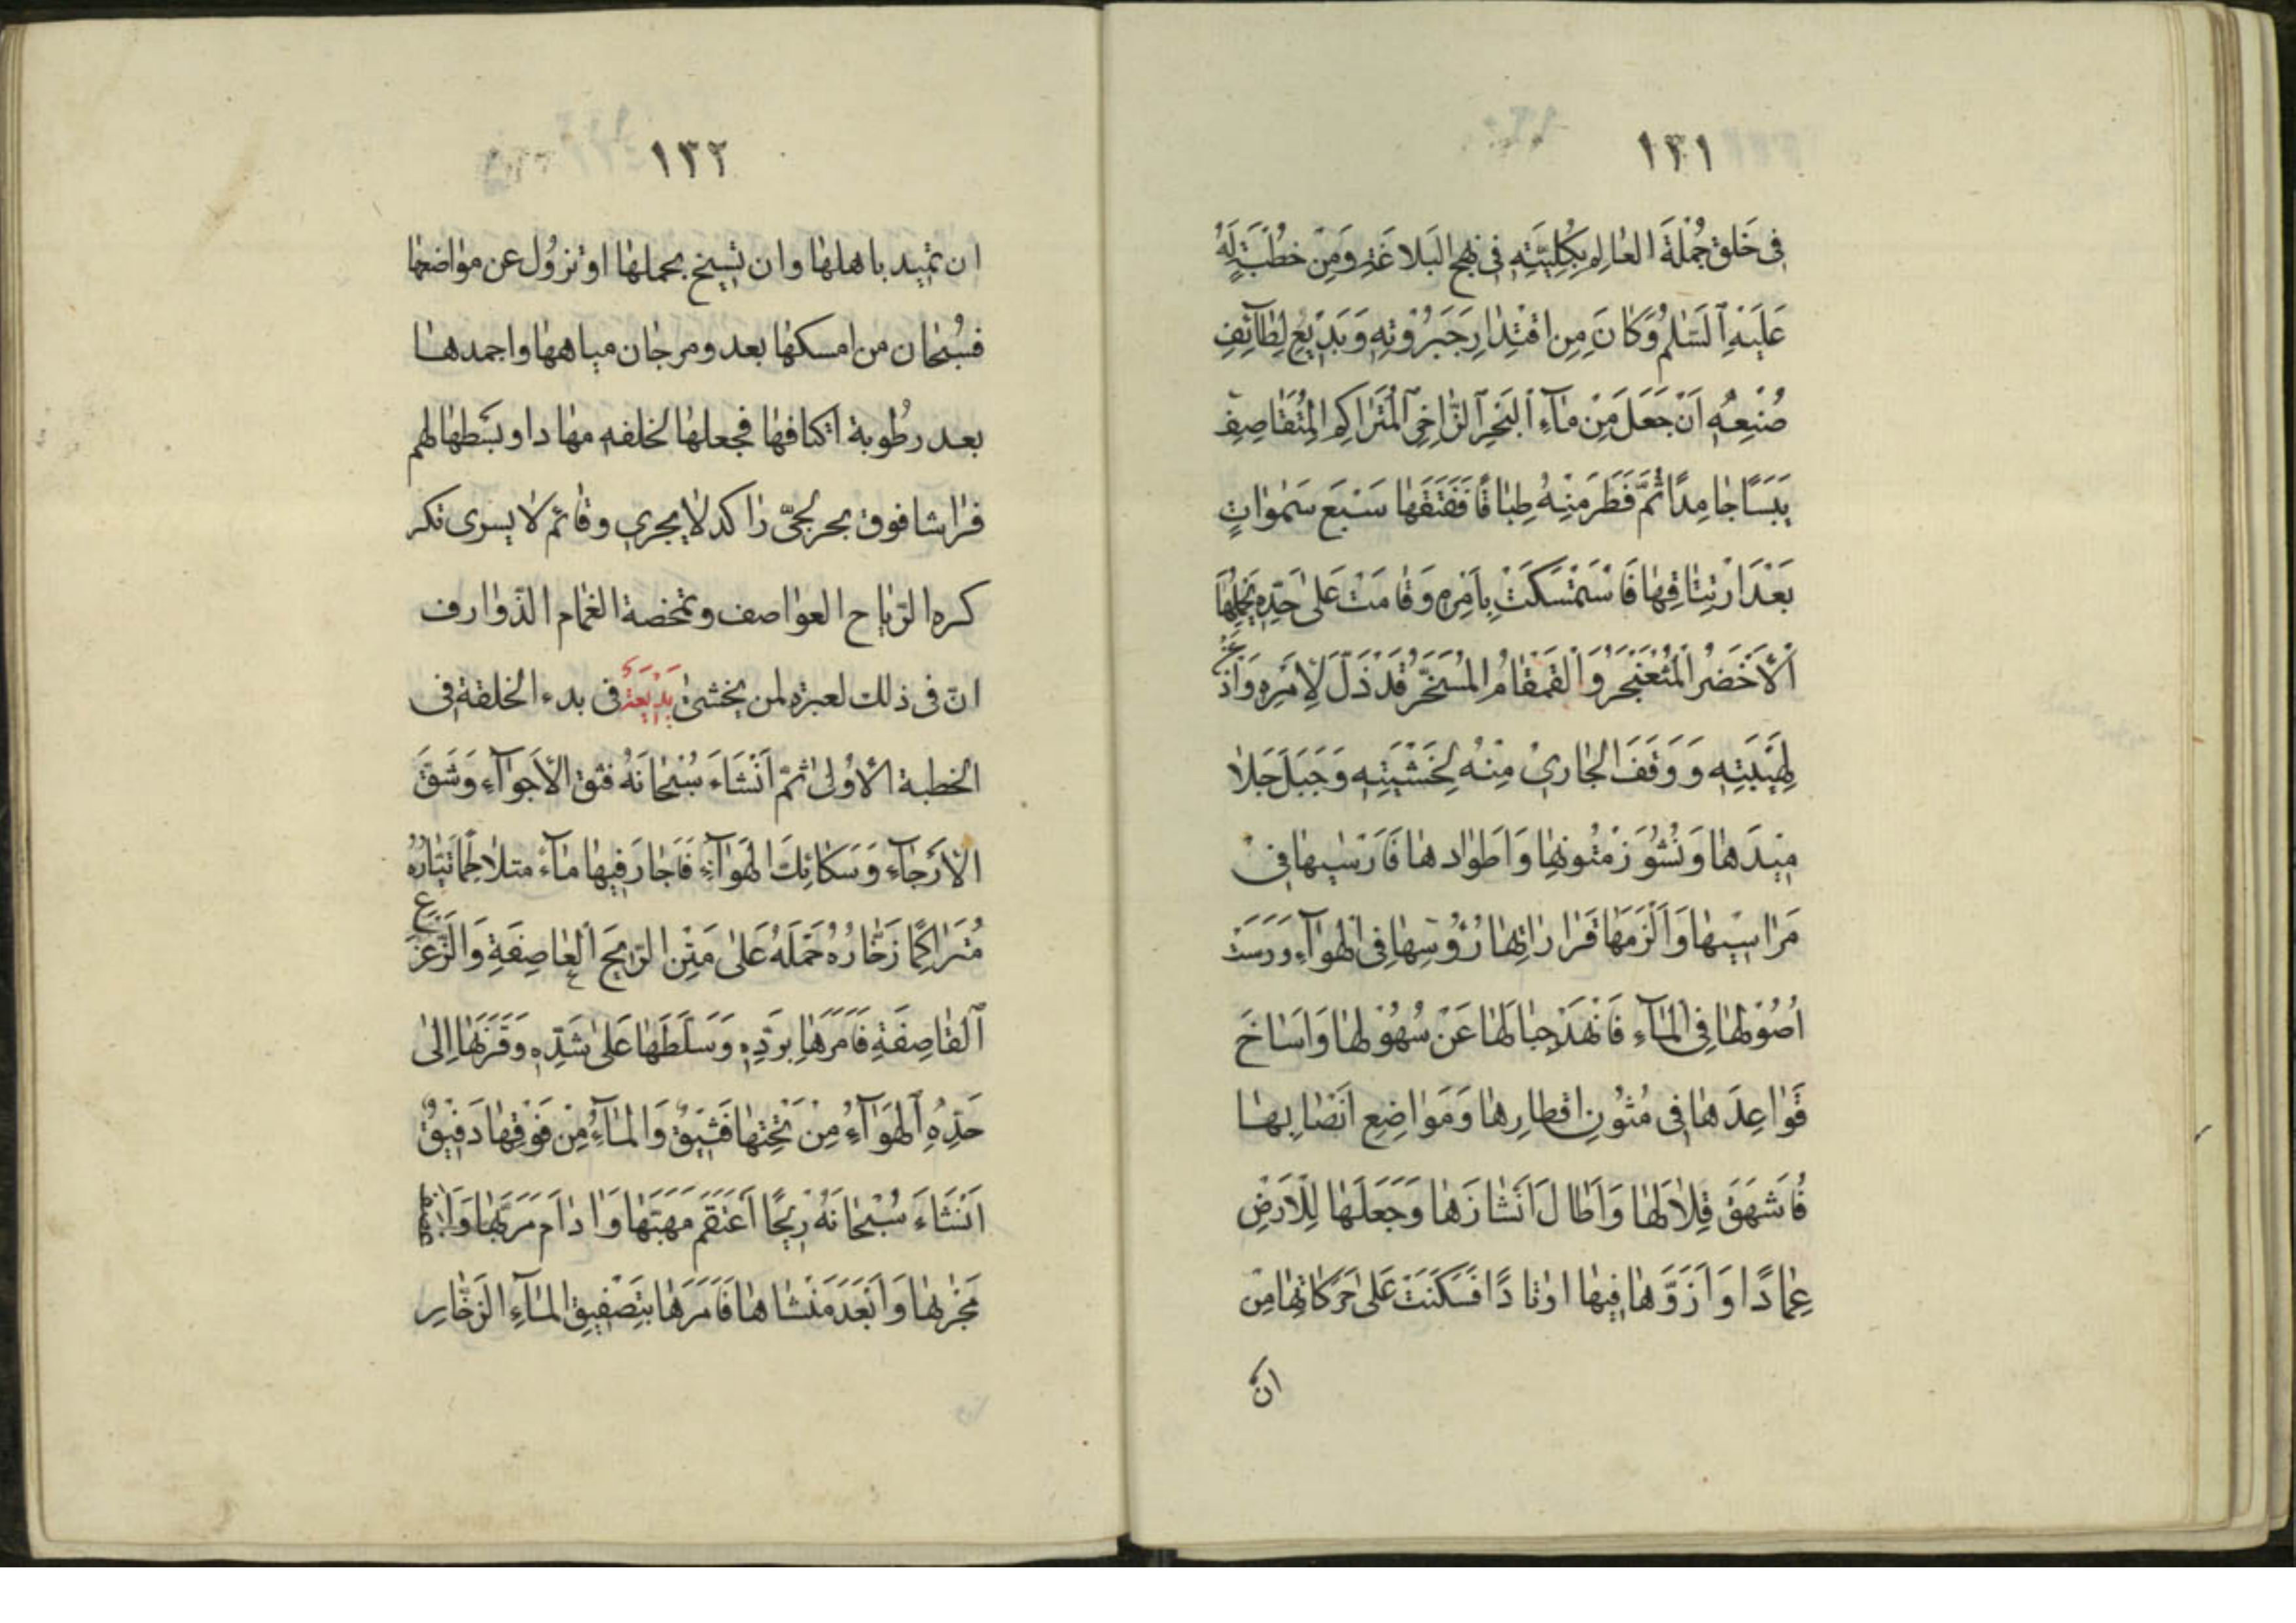 ١٣١
في خَلق جُمْلَةَ العٰالِم بِكُلِيَّتِهِ في نهج البَلاغَةِ وَمِنْ خُطْبَةٍ لَهُ
عَلَيْهِ السَّلٰم وَكٰانَ مِنِ اقْتِدٰارِ جَبَرُوْتِهِ وَبَدِيْعِ لِطٰآئِفِ
صُنْعِهِ اَنْ جَعَلَ مِنْ مٰآءِ اَلبَحْرِ الزّٰاخِرِ اَلْمُتَرٰاكِمِ المُتَقٰاصِفِ
يَبَسًا جٰامِدًا ثُمَّ فَطَرَ مِنْهُ طِبٰاقًا فَفَتَقَهٰا سَبْعَ سَمٰوٰاتٍ
بَعْدَ ارْتِتٰاقِهٰا فَاسْتَمْسَكَتْ بِاَمْرِهِ وَقٰامَتْ عَلٰى حَدِّهِ يَحْمِلُهَا
اَلْأَخْضَرُ اَلْمُثْعَنْجَرُ وَالْقَمْقٰامُ المُسَخَّرُ قَدْ ذَلَّ لِأَمْرِهِ وَاَذْعَنَ
لِهَيْبَتِهِ وَوَقَفَ الجٰارِيْ مِنْهُ لِخَشْيَتِهِ وَجَبَلَ جَلٰا
مِيْدَهٰا وَنُشُوْزَ مُتُونِهٰا وَاَطْوٰادهٰا فَاَرْسٰيهٰا فِيْ
مَرٰاسِيْهٰا وَاَلْزَمَهٰا قَرٰارٰاتِهٰا رُؤُسِهٰا فِى الْهَوٰآءِ وَرَسَتْ
اُصُوْلهٰا فِى المٰآءِ فَانْهَدَ جِبٰالَهٰا عَنْ سُهُوْلهٰا وَاَسٰاخَ
قَوٰاعِدَهٰا فِى مُتُوْنِ اقطٰارِهٰا وَمَوٰاضِعِ اَنْصٰابِهٰا
فَاَشهَقَ قِلٰالَهٰا وَاَطٰالَ اَنْشٰازَهٰا وَجَعَلَهٰا لِلْاَرْضِ
عِمٰادًا وَاَرَزَّهٰا فِيهٰا اوْتٰادًا فَسَكَنَتْ عَلٰى حَرَكٰاتِهٰا مِنْ
ان
١٣٢
ان تميد باهلهٰا وان تسيخ بحملهٰا او تزول عن موٰاضعهٰا
فسُبْحٰان من امسكهٰا بعد ومرجٰان مياههٰا واجمدهٰا
بعد رطُوبة اكنافهٰا فجعلهٰا لخلقه مهٰادا وبسَطهٰا لهم
فرٰاشا فوق بحر لجىّ رٰاكد لٰا يجري وقٰائم لا يسرى تكر
كره الرّيٰاح العوٰاصف وتمخضه الغمٰام الذّوٰارف
انّ فى ذلك لعبرة لمن يخشىٰ بَدِيْعَة فى بدء الخلقة فى
الخطبة الأوُلىٰ ثمّ اَنْشَاءَ سُبْحٰانَهُ فتق الأَجوٰآءِ وَشَقَّ
الأَرْجٰآءِ وَسَكٰائِكَ الْهَوٰآءِ فَاَجٰارَ فِيهٰا مٰآءً متلٰاطِمًا تَيّٰارُهُ
مُتَرٰاكِمًا زَخّٰارُهُ حَمَلَهُ عَلٰى مَتْنِ الرّيحِ العٰاصِفَةِ وَالزَّعْزَعِ
اَلقٰاصِفَةِ فَاَمَرَهٰا بِرَدِّهِ وَسَلَّطَهٰا عَلٰى شَدِّهِ وَقَرَنَهٰا اِلٰى
حَدِّهِ اَلْهَوَآءُ مِنْ تَحْتِهٰا فَتِيْقٌ وَالْمٰآءُ مِنْ فَوْقِهٰا دَفِيْقٌ
اَنْشَاءَ سُبْحٰانَهُ رِيْحًا اَعْتَقَمَ مَهَبَّهٰا وَاَدٰامَ مَرَبَّهٰا وَاَعْصَفَ
مَجْرٰىهٰا وَاَبْعَدَ مَنْشٰاهٰا فَاَمَرَهٰا بِتَصْفِيْقِ المٰآءِ الزَّخّٰارِ